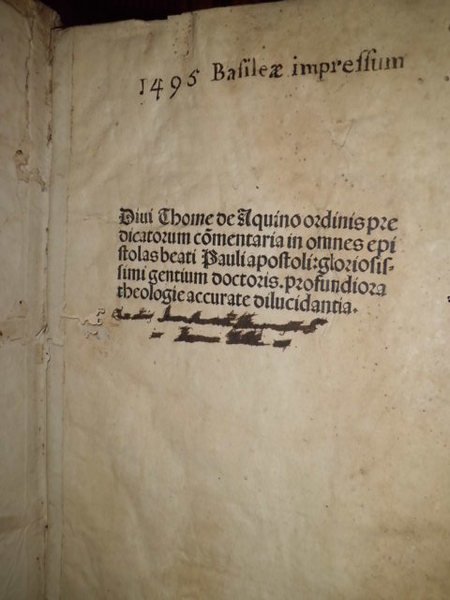 1495 Basileæ impressum
Diui Thome de Aquino ordinis pre
dicatorum cōmentaria in omnes epi
stolas beati Pauli apostoli: gloriosis-
simi gentium doctoris. profundiora
theologie accurate dilucidantia.